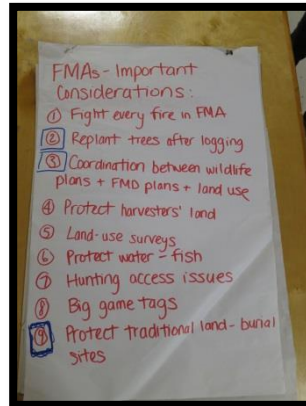 FMAs - Important
Considerations:
① Fight every fire in FMA
② Replant trees after logging
③ Coordination between wildlife
plans + FMD plans + land use
④ Protect harvesters' land
⑤ Land-use surveys
⑥ Protect water - fish
⑦ Hunting access issues
⑧ Big game tags
⑨ Protect traditional land - burial
sites